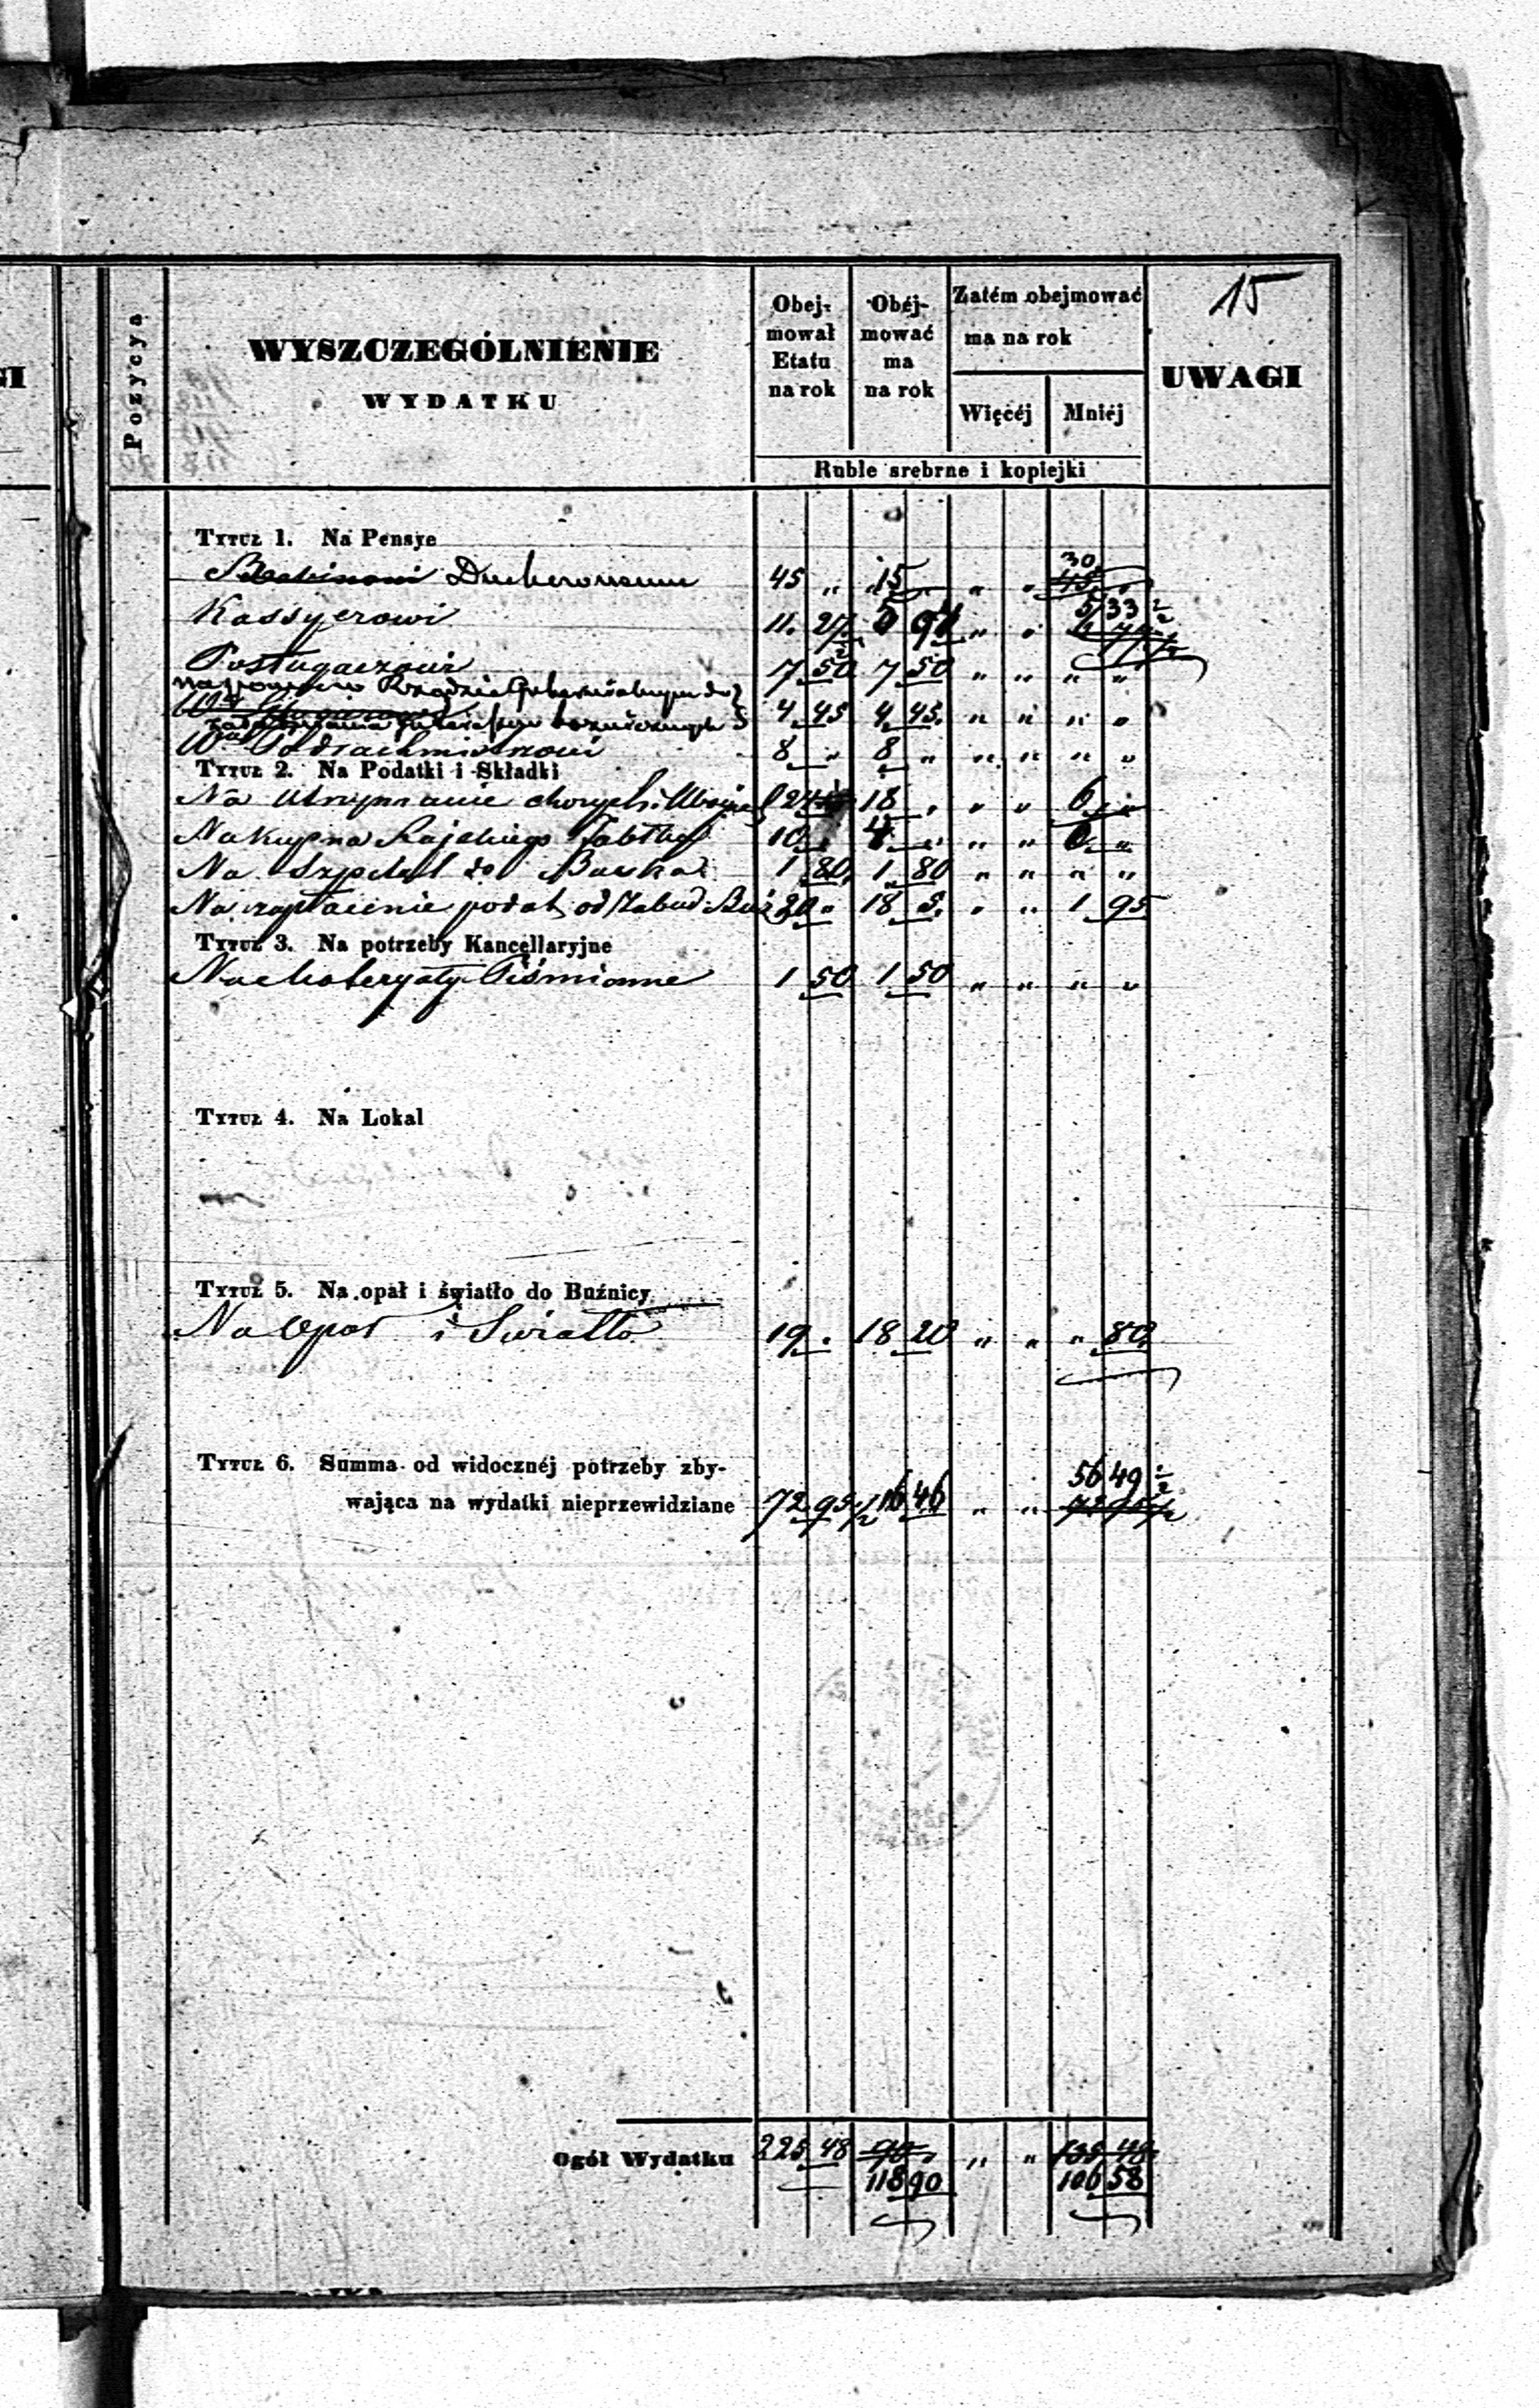 15
GI
Pozycya
WYSZCZEGÓLNIENIE
WYDATKU
Obej-
mował
Etatu
na rok
Obej-
mować
ma
na rok
Zatém obejmować
ma na rok
Więcéj
Mniéj
UWAGI
Ruble srebrne i kopiejki
Tytuł 1. Na Pensye
Duchownemu 45 „ 15 „ „ 30
Kassyerowi 11. 27 5 94 „ „ 5 33 1/2
Posługaczowi 7 50 7 50 „ „ „ „
4 45 4 45. „ „ „ „
8 „ 8 „ „ „ „ „
Tytuł 2. Na Podatki i Składki
Na utrzymanie chorych i 24 18 „ „ 6 „
Na kupno Rajskiego Jabłka 10 4 „ „ 6 „
Na Szpital do 1 80 1 80 „ „ „ „
Na zapłacenie podat. od Zabud. 20 „ 18 5. „ „ 1 95
Tytuł 3. Na potrzeby Kancellaryjne
Na Materyały Piśmienne 1 50 1 50 „ „ „ „
Tytuł 4. Na Lokal
Tytuł 5. Na opał i światło do Buźnicy
Na Opał i Światło 19 „ 18 20 „ „ „ 80
Tytuł 6. Summa od widocznéj potrzeby zby-
56 49 1/2
wająca na wydatki nieprzewidziane 72 95 1/2 16 46 „ „ 72 95 1/2
Ogół Wydatku 225 48 90 „ „ „ 135 48
118 90 106 58